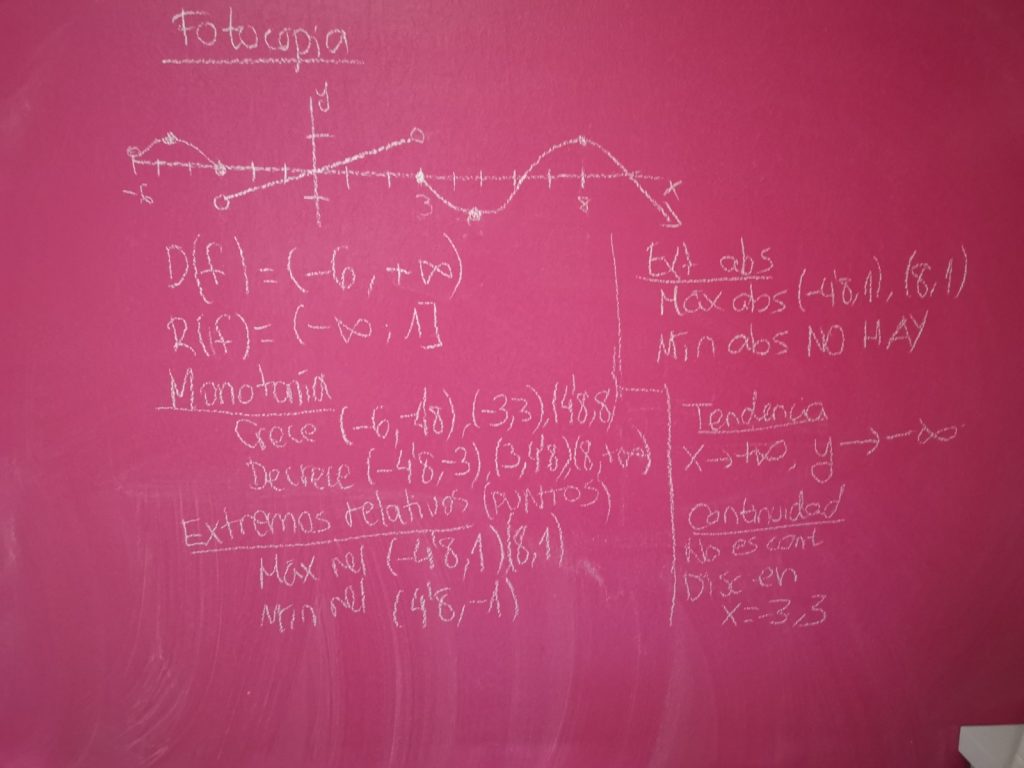 Fotocopia
y
x
-6
3
8
D(f) = (-6, +∞)
R(f) = (-∞, 1]
Monotonía
Crece (-6, -4'8), (-3,3), (4'8,8)
Decrece (-4'8,-3), (3,4'8)(8,+∞)
Extremos relativos (PUNTOS)
Máx rel (-4'8,1)(8,1)
Mín rel (4'8,-1)
Ext abs
Máx abs (-4'8,1), (8,1)
Mín abs NO HAY
Tendencia
x→+∞, y→-∞
Continuidad
No es cont
Disc en
x=-3,3